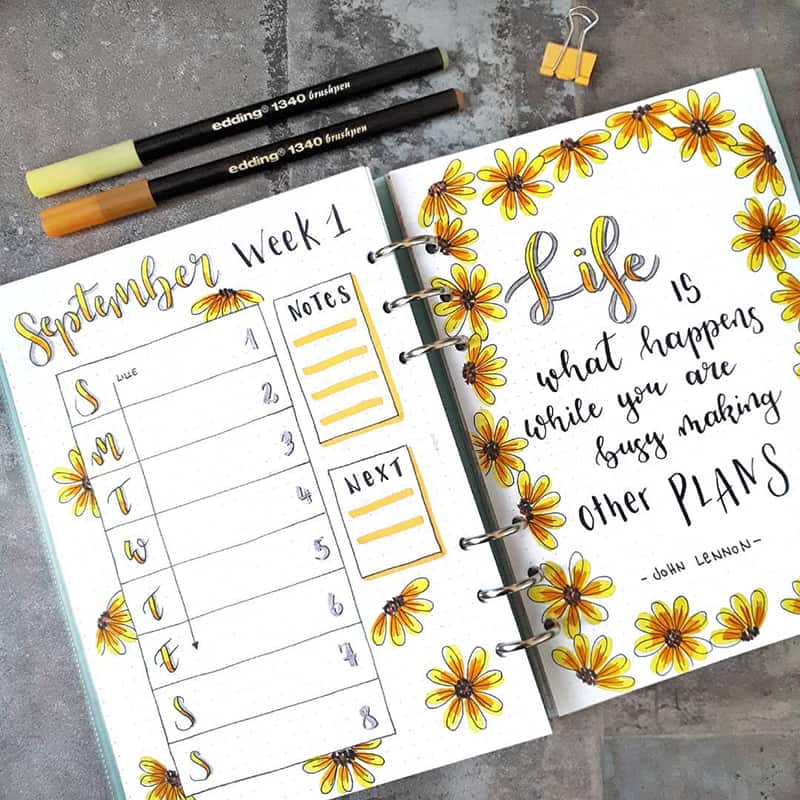 edding® 1340 brushpen
edding® 1340 brushpen
September Week 1
S LILLE 1
M 2
T 3
W 4
T 5
F 6
S 7
S 8
NOTES
NEXT
Life
is
what happens
while you are
busy making
other PLANS
- JOHN LENNON -